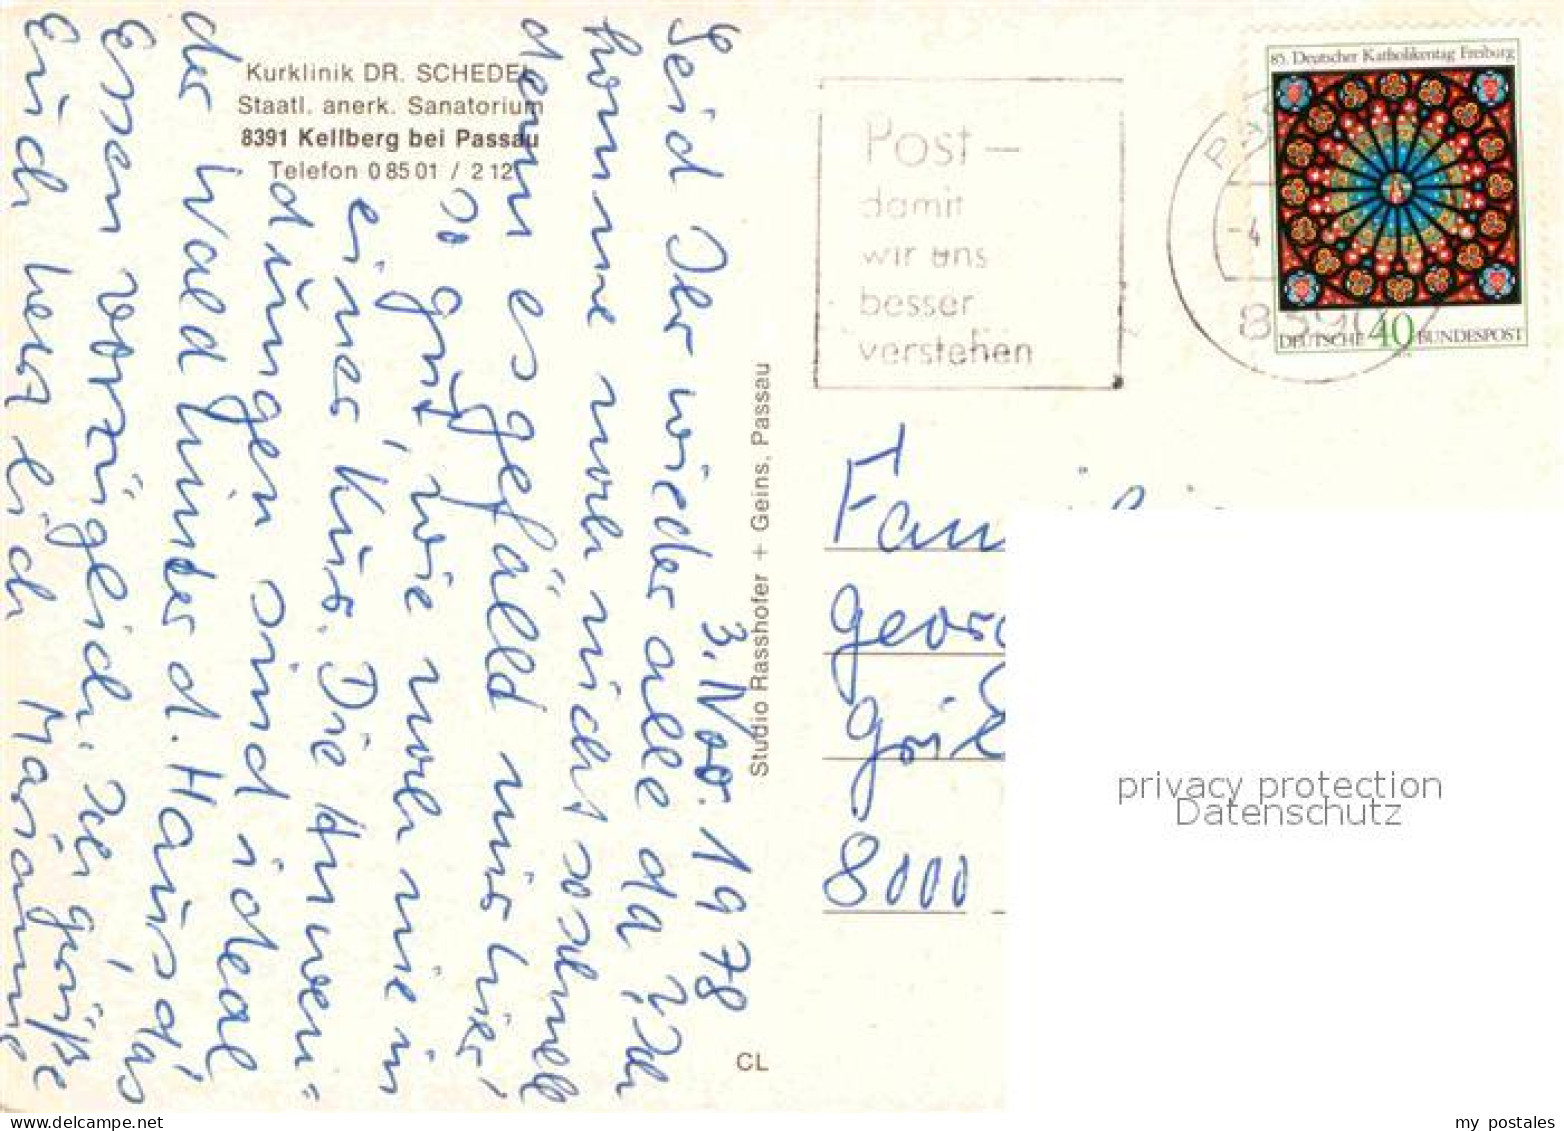 Kurklinik DR. SCHEDEL
Staatl. anerk. Sanatorium
8391 Kellberg bei Passau
Telefon 0 85 01 / 2 12
3. Nov. 1978
Seid Ihr wieder alle da? Ich
komme noch nicht so schnell
denn es gefällt mir hier
so gut, wie noch nie in
einer Kur. Die Anwen-
dungen sind ideal
der Wald hinter d. Haus, das
Essen vorzüglich. Ich grüße
Euch herzlich Marianne
Studio Rasshofer + Geins, Passau
CL
Post –
damit
wir uns
besser
verstehen
85. Deutscher Katholikentag Freiburg
DEUTSCHE 40 BUNDESPOST
-4
8390
8000
privacy protection
Datenschutz
www.delcampe.net
my_postales